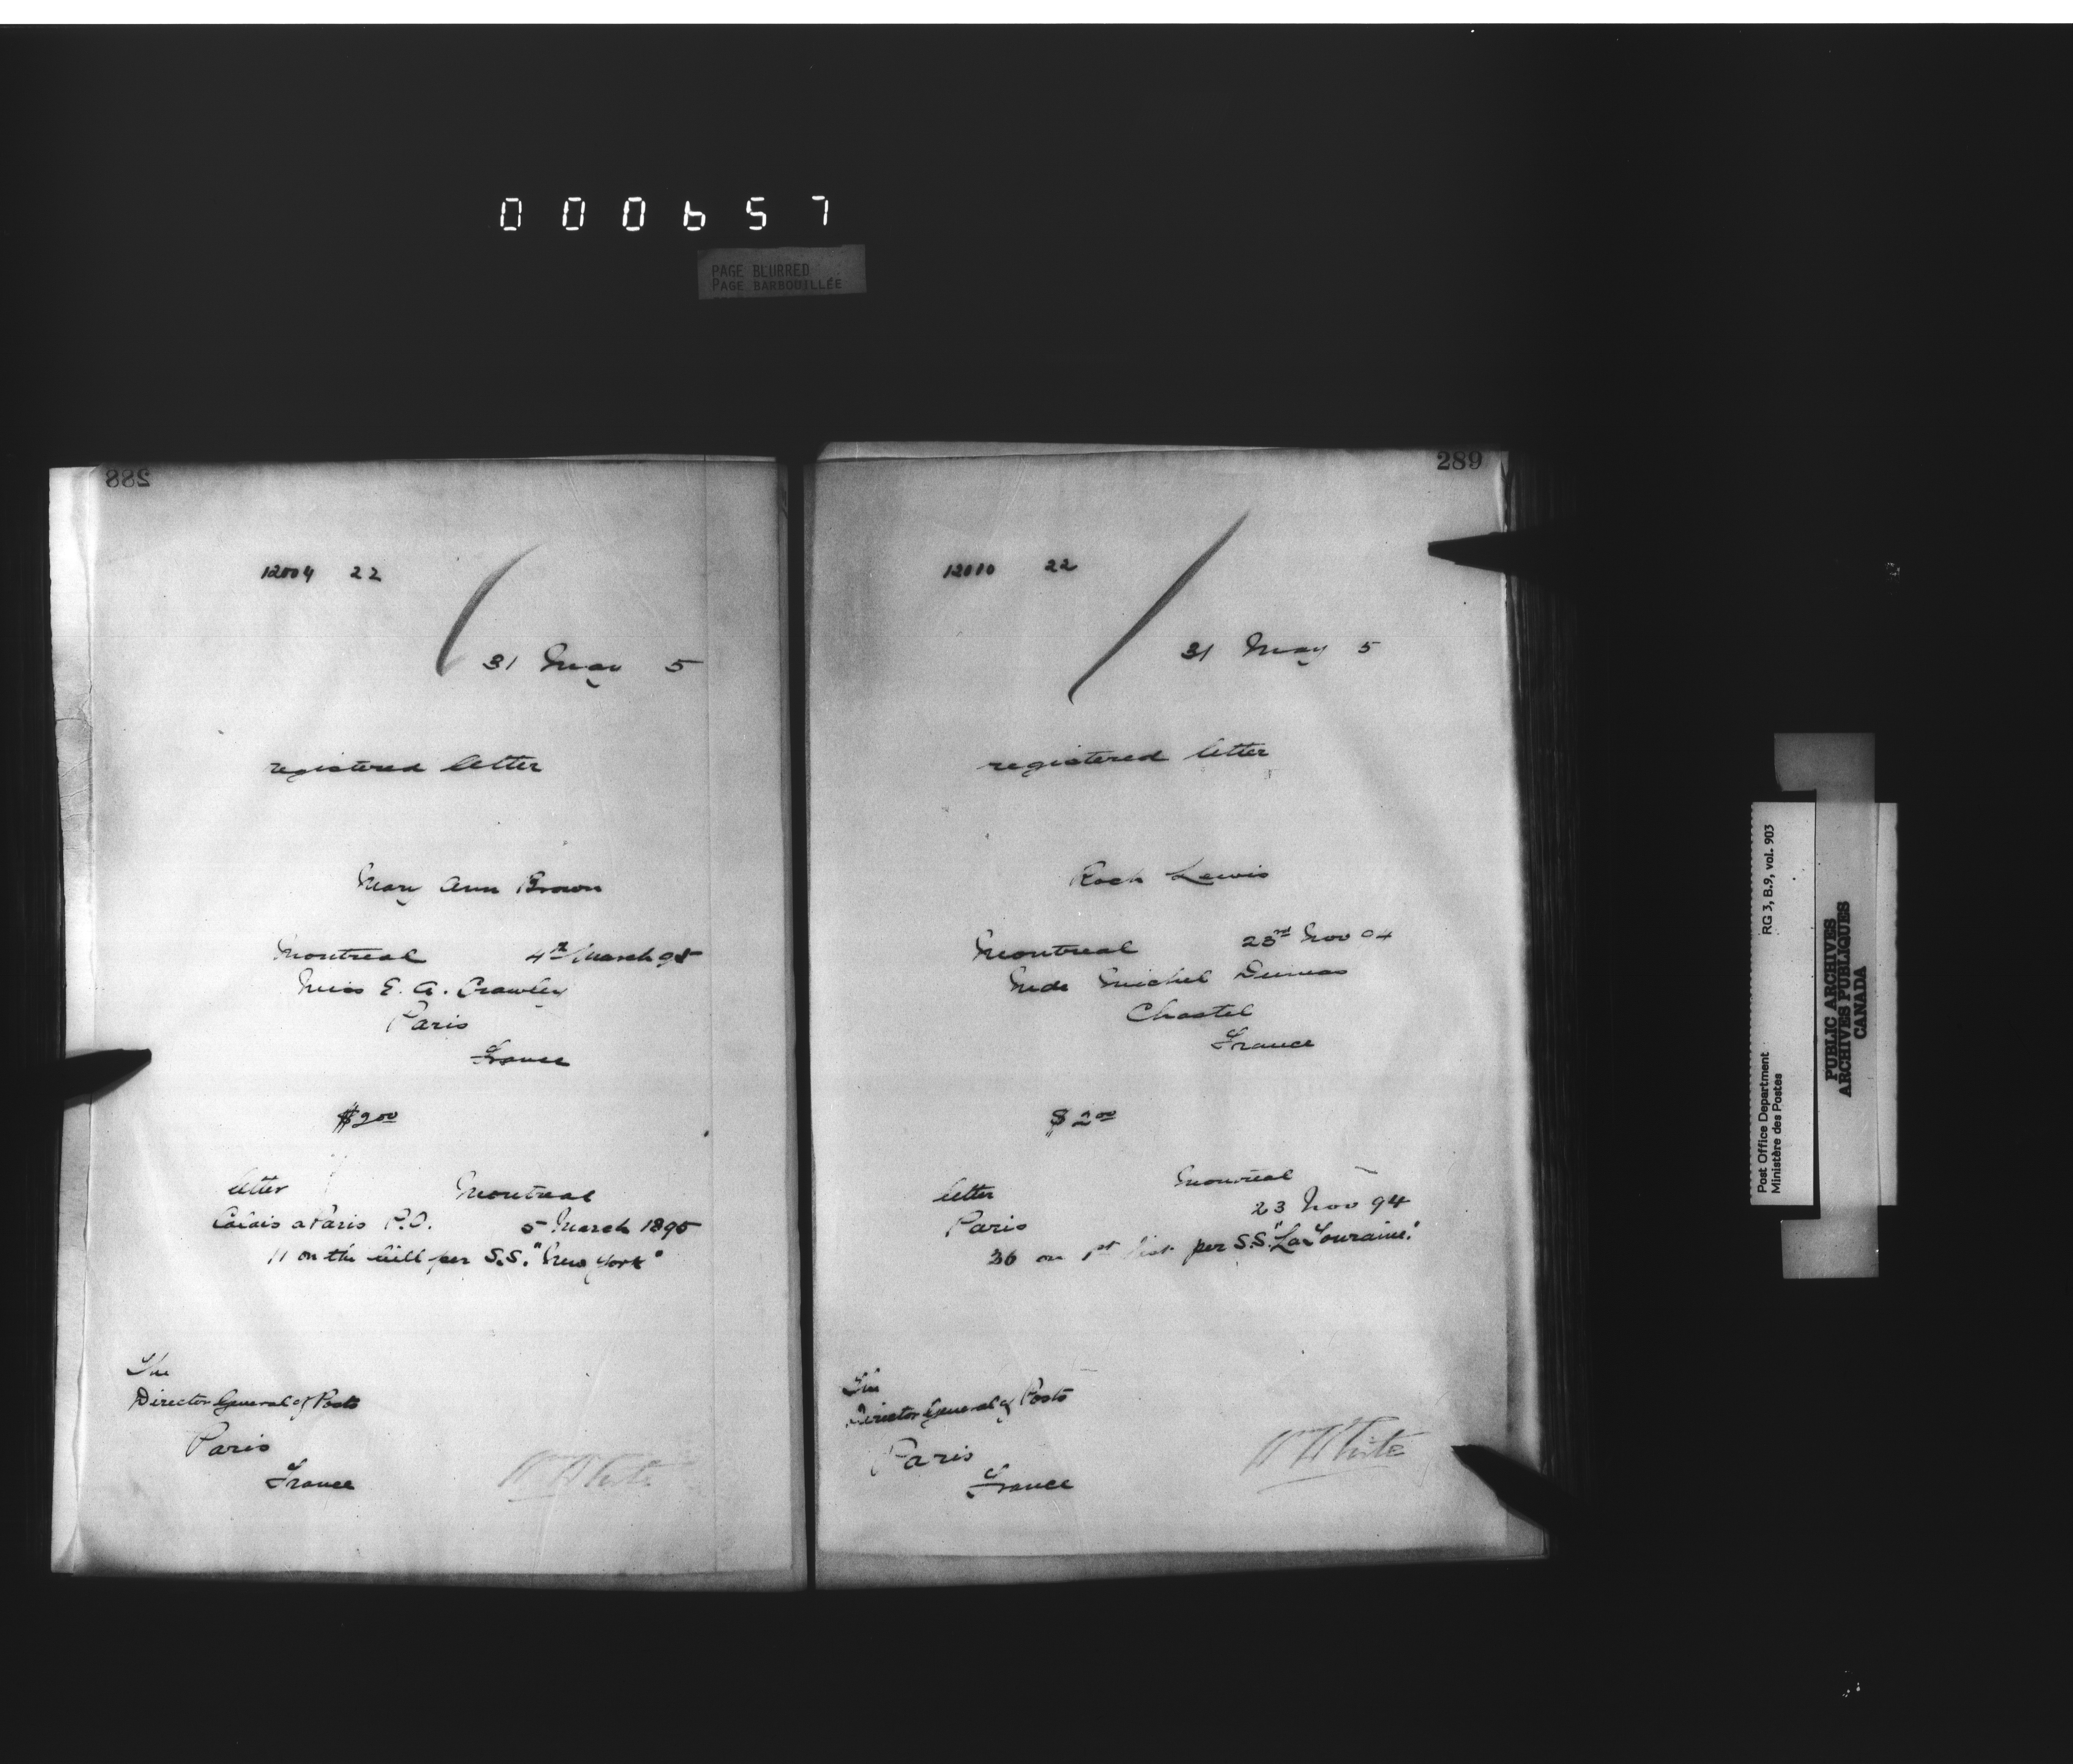 000657
PAGE BLURRED
PAGE BARBOUILLÉE
288
12004 22
31 May 5
registered letter
Mary Ann Brown
Montreal 4th March 95
Miss E. A. Crawley
Paris
France
$2.00
letter Montreal
Calais a Paris P.O. 5 March 1895
11 on the bill per S.S. "New York"
The
Director General of Posts
Paris
France
W White
289
12010 22
31 May 5
registered letter
Roch Lewis
Montreal 23rd Nov 94
Mde Michel Dumas
Chastel
France
$2.00
letter Montreal
Paris 23 Nov 94
36 on 1st list per S.S. "La Touraine."
The
Director General of Posts
Paris
France
W White
Post Office Department
Ministère des Postes
RG 3, B.9, vol. 903
PUBLIC ARCHIVES
ARCHIVES PUBLIQUES
CANADA